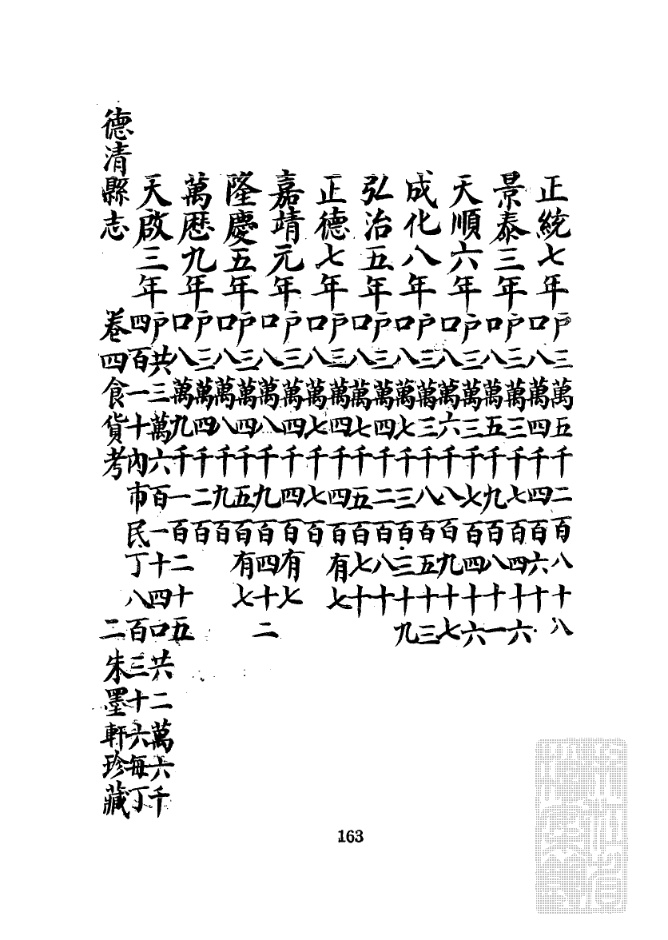 正統七年
户三萬五千二百八十八
口八萬四千四百六十
景泰三年
户三萬三千七百四十六
口八萬五千九百八十一
天順六年
户三萬三千七百四十六
口八萬六千八百九十七
成化八年
户三萬三千八百五十三
口八萬七千三百三十九
弘治五年
户三萬四千二百八十
口八萬七千五百七十
正德七年
户三萬四千四百有七
口八萬七千七百
嘉靖元年
户三萬四千四百有七
口八萬八千九百四十二
隆慶五年
户三萬四千五百有七
口八萬八千九百
萬歷九年
户三萬四千二百
口八萬九千一百二十五
天啟三年
户共三萬六百一十四口共二萬六千
四百一十內市民丁八百三十六每丁
德清縣志 卷四食貨考 二 朱墨軒珍藏
163